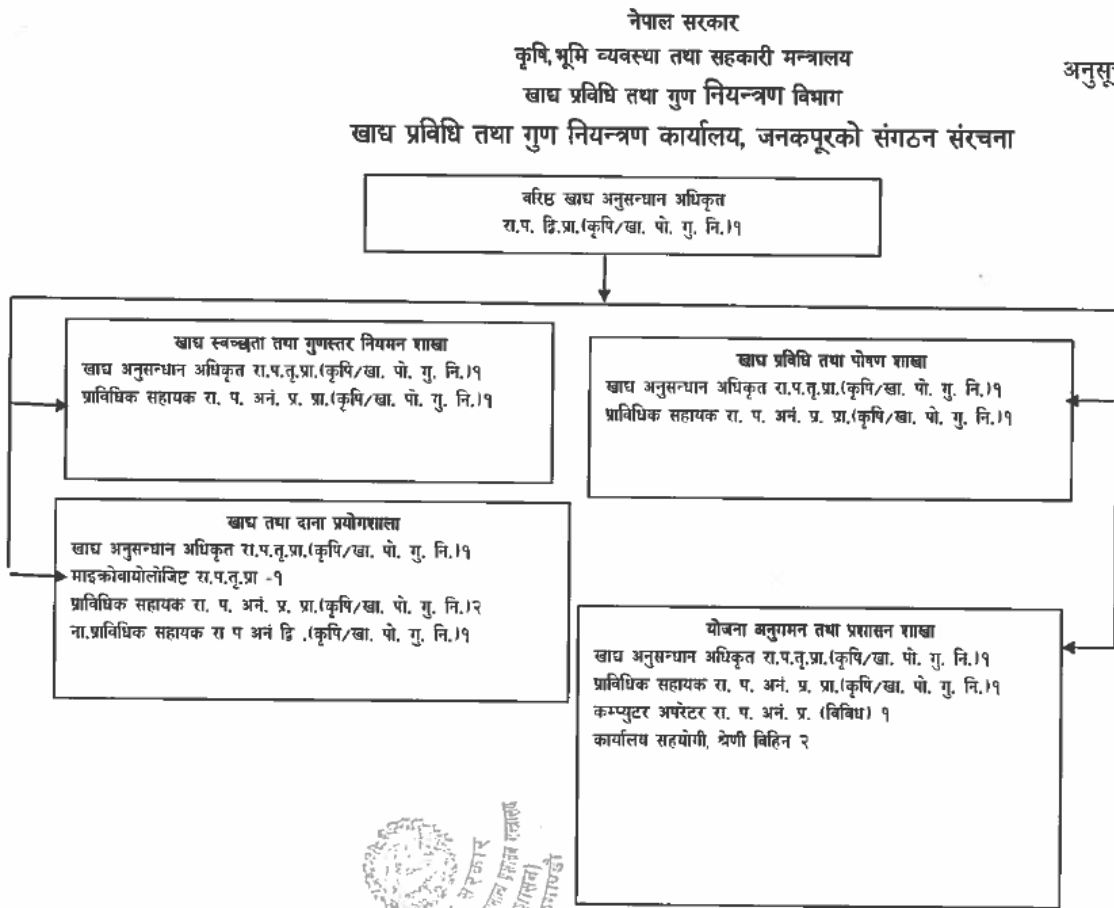 नेपाल सरकार
कृषि, भूमि व्यवस्था तथा सहकारी मन्त्रालय
अनुसू
खाद्य प्रविधि तथा गुण नियन्त्रण विभाग
खाद्य प्रविधि तथा गुण नियन्त्रण कार्यालय, जनकपूरको संगठन संरचना
वरिष्ठ खाद्य अनुसन्धान अधिकृत
रा.प. द्वि.प्रा.(कृषि/खा. पो. गु. नि.)१
खाद्य स्वच्छता तथा गुणस्तर नियमन शाखा
खाद्य अनुसन्धान अधिकृत रा.प.तृ.प्रा.(कृषि/खा. पो. गु. नि.)१
प्राविधिक सहायक रा. प. अनं. प्र. प्रा.(कृषि/खा. पो. गु. नि.)१
खाद्य प्रविधि तथा पोषण शाखा
खाद्य अनुसन्धान अधिकृत रा.प.तृ.प्रा.(कृषि/खा. पो. गु. नि.)१
प्राविधिक सहायक रा. प. अनं. प्र. प्रा.(कृषि/खा. पो. गु. नि.)१
खाद्य तथा दाना प्रयोगशाला
खाद्य अनुसन्धान अधिकृत रा.प.तृ.प्रा.(कृषि/खा. पो. गु. नि.)१
माइक्रोवायोलोजिष्ट रा.प.तृ.प्रा -१
प्राविधिक सहायक रा. प. अनं. प्र. प्रा.(कृषि/खा. पो. गु. नि.)२
ना.प्राविधिक सहायक रा प अनं द्वि .(कृषि/खा. पो. गु. नि.)१
योजना अनुगमन तथा प्रशासन शाखा
खाद्य अनुसन्धान अधिकृत रा.प.तृ.प्रा.(कृषि/खा. पो. गु. नि.)१
प्राविधिक सहायक रा. प. अनं. प्र. प्रा.(कृषि/खा. पो. गु. नि.)१
कम्प्युटर अपरेटर रा. प. अनं. प्र. (विविध) १
कार्यालय सहयोगी, श्रेणी विहिन २
सरकार